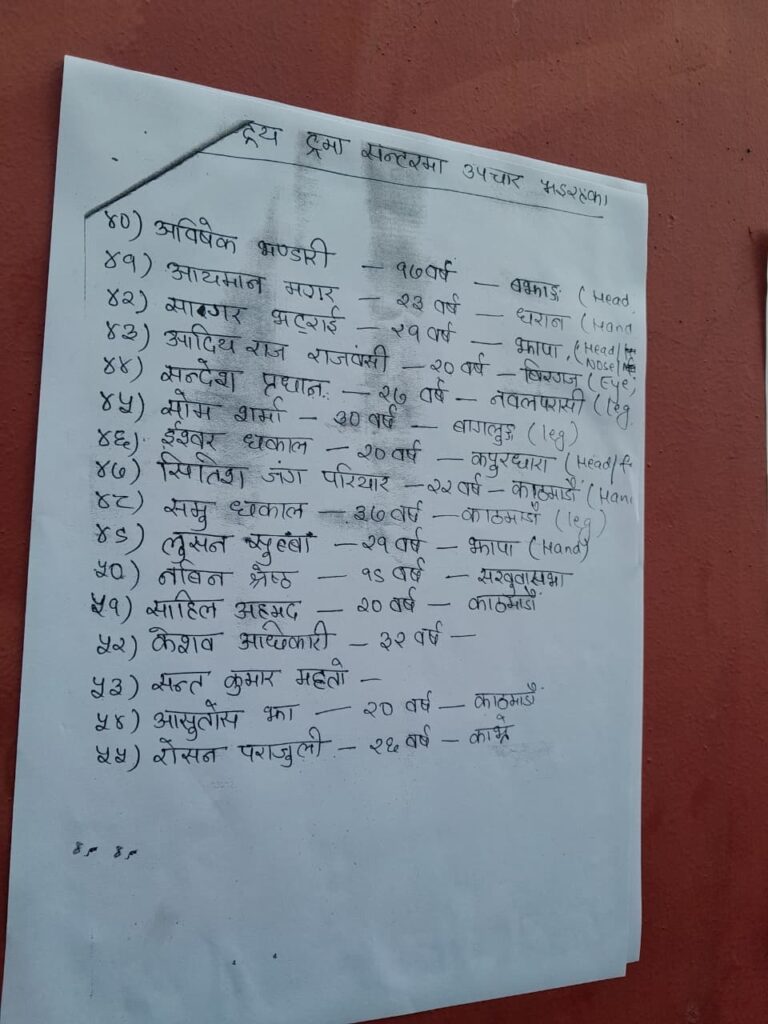 ट्रमा सेन्टरमा उपचार भइरहेका
४०) अविषेक भण्डारी - १७ वर्ष - बझाङ (Head
४१) आयमान मगर - २३ वर्ष - धरान (Hand
४२) सागर भट्राई - २१ वर्ष - झापा (Head/ Nose/
४३) आदित्य राज राजवंसी - २० वर्ष - बिरगंज (Eye)
४४) सन्देश प्रधान - २७ वर्ष - नवलपरासी (leg
४५) सोम शर्मा - ३० वर्ष - बागलुङ्ग (leg)
४६) ईश्वर ढकाल - २० वर्ष - कपुरधारा (Head/
४७) सितिश जंग परियार - २२ वर्ष - काठमाडौं (Han
४८) समु ढकाल - ३७ वर्ष - काठमाडौं (leg)
४९) लुसन सुहंबा - २१ वर्ष - झापा (Hand)
५०) नबिन श्रेष्ठ - १९ वर्ष - सखुवासभा
५१) साहिल अहमद - २० वर्ष - काठमाडौं
५२) केशव अधिकारी - ३२ वर्ष -
५३) सन्त कुमार महतो -
५४) आसुतोस झा - २० वर्ष - काठमाडौं
५५) रोसन पराजुली - २६ वर्ष - काभ्रे